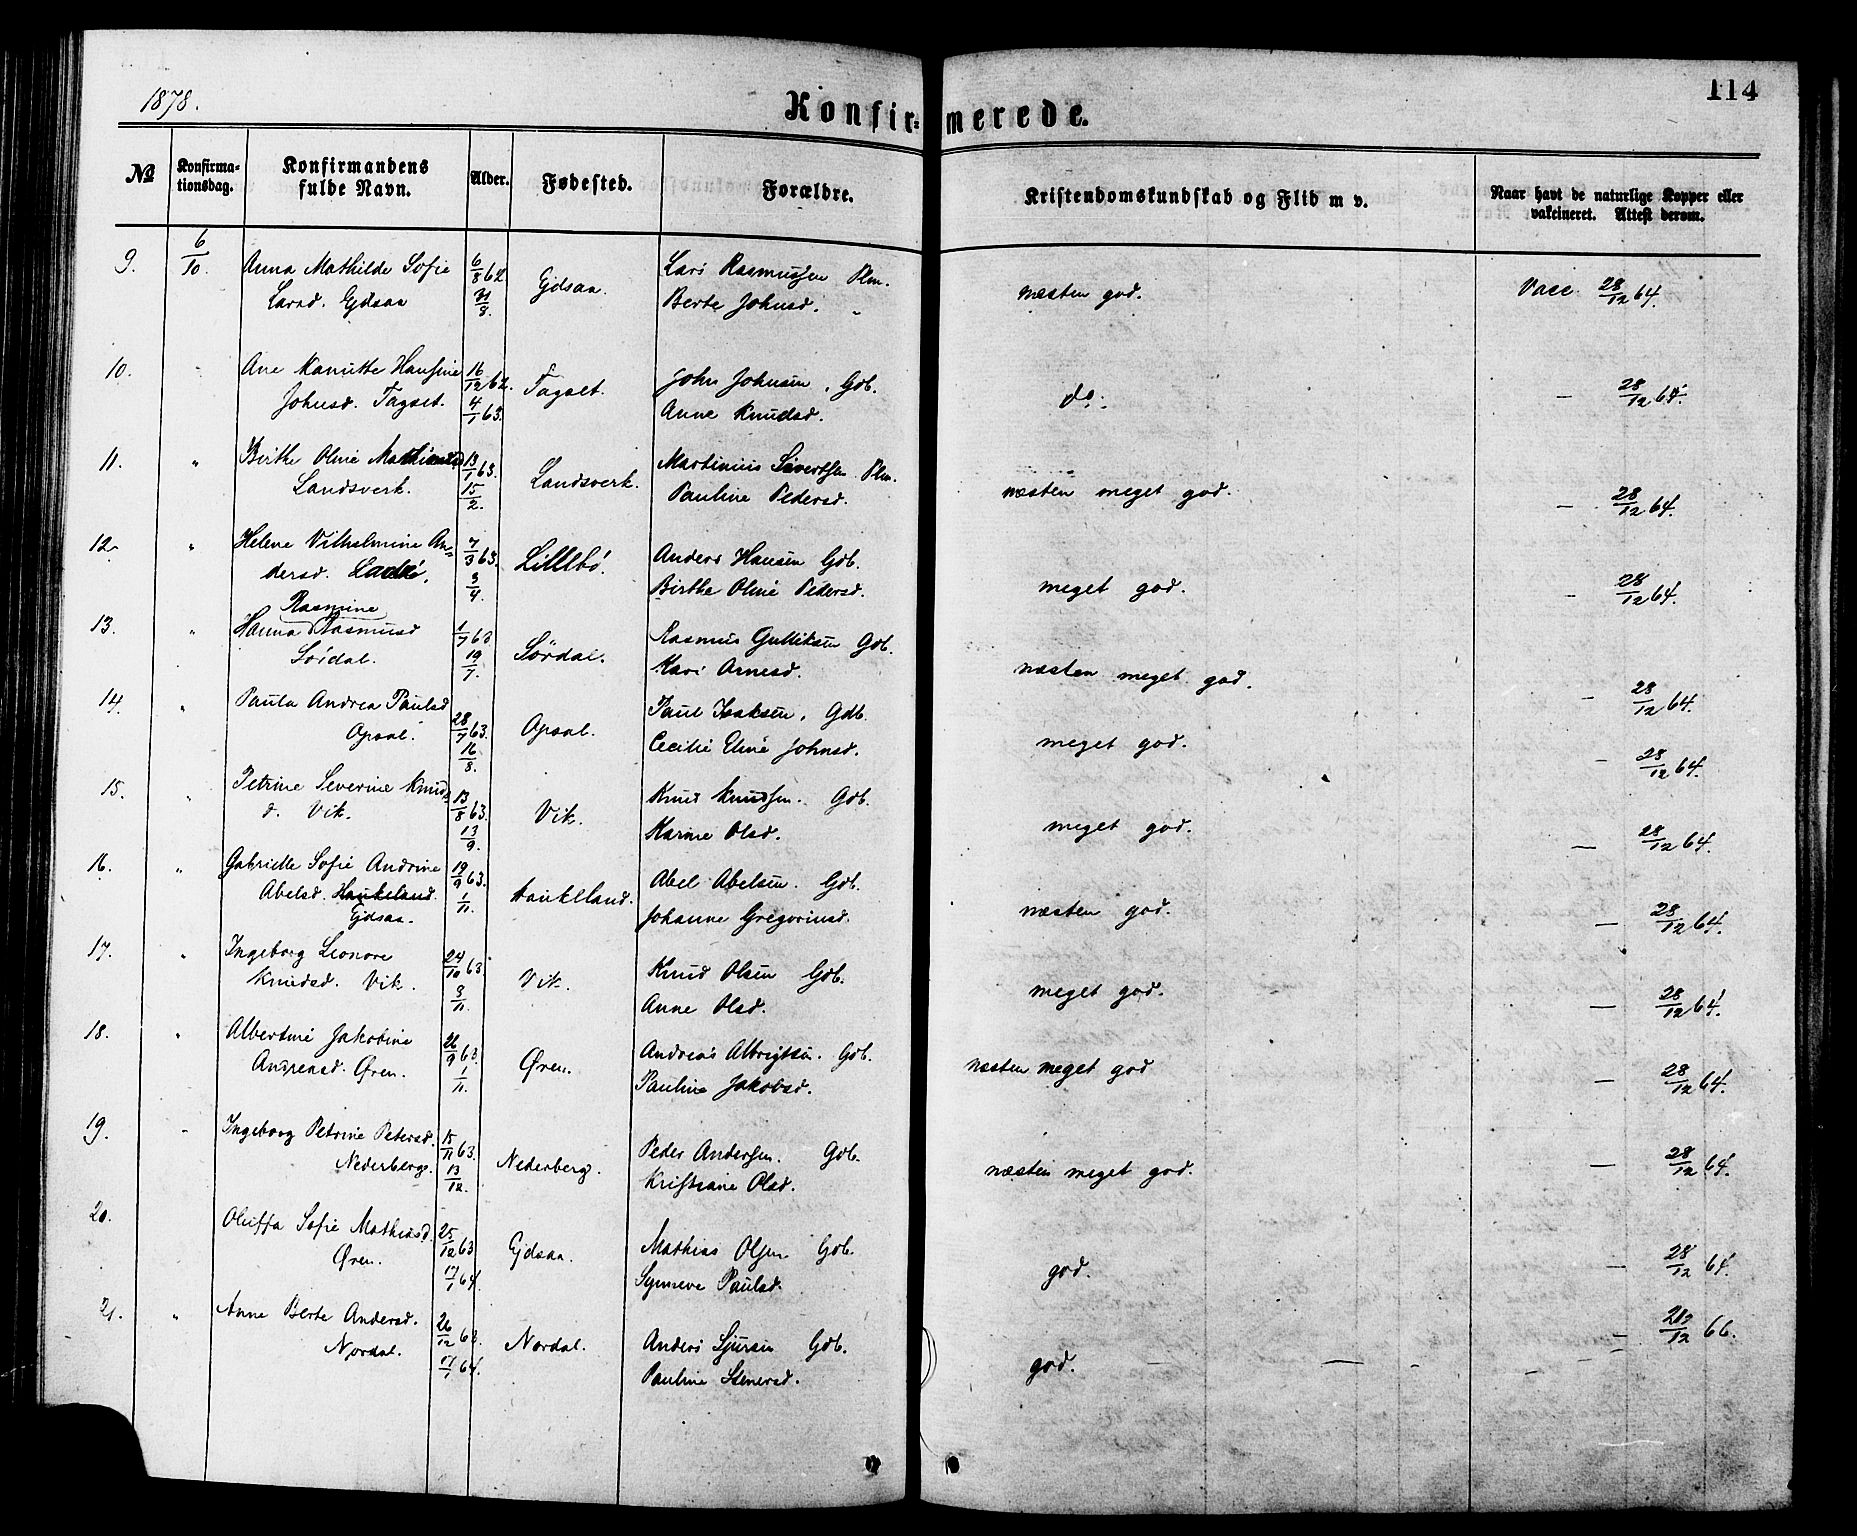 1878.
114
Konfirmerede.
No
Konfirmationsdag.
Konfirmandens fulde Navn.
Alder.
Fødested.
Forældre.
Kristendomskundskab og Flid m v.
Naar havt de naturlige Kopper eller vakcineret. Attest derom.
9. 6/10. Anna Mathilde Sofie 6/8 62 Ejdsaa. Lars Rasmussen Plm. næsten god. Vacc. 28/12 64.
Larsd. Ejdsaa 31/8. Berte Johnsd. "
10. " Ane Kanutte Hansine 16/12 62. Tagset. John Johnsen. Gdb. do. - 28/12 64.
Johnsd. Tagset. 4/1 63. Anne Knudsd.
11. " Birthe Oline 13/1 63. Landsverk. Martinius Sivertsen Plm. næsten meget god. - 28/12 64.
Landsverk. 15/2. Pauline Pedersd.
12. " Helene Vilhelmine An- 7/3 63. Lillebö. Anders Hansen Gdb. meget god. - 28/12 64.
dersd. 3/4. Birthe Oline Pedersd.
Rasmine
13. " Hanna Rasmusd 1/7 63 Sördal. Rasmus Gulliksen Gdb. næsten meget god. - 28/12 64.
Sördal. 19/7. Kari Arnesd.
14. " Paula Andrea Paulsd 28/7 63. Opsal. Paul Isaksen. Gdb. meget god. - 28/12 64.
Opsal. 16/8. Cecilie Eline Johnsd.
15. " Petrine Severine Knuds- 13/8 63. Vik. Knud Knudsen. Gdb. meget god. - 28/12 64.
d. Vik. 13/9. Karine Olsd.
16. " Gabrielle Sofie Andrine 19/9 63. Haukeland. Abel Abelsen. Gdb. næsten god. - 28/12 64.
Abelsd. Haukeland. 1/11. Johanne Gregoriusd.
Ejdsaa.
17. " Ingeborg Leonore 24/10 63. Vik. Knud Olsen Gdb. meget god. - 28/12 64.
Knudsd. Vik. 8/11. Anne Olsd.
18. " Albertine Jakobine 26/9 63. Øren. Andreas Albrigtsen. Gdb. næsten meget god - 28/12 64.
Andreasd. Øren. 1/11. Pauline Jakobsd.
19. " Ingeborg Petrine Petersd. 15/11 63. Nederberg. Peder Andersen. Gdb. næsten meget god. - 28/12 64.
Nederberg. 13/12. Kristiane Olsd.
20. Oluffa Sofie Mathiasd. 25/12 63 Ejdsaa. Mathias Olsen Gdb. god. - 28/12 64.
Øren. 17/1 64. Synneve Paulsd.
21. " Anne Berte Andersd. 26/12 63. Nordal. Anders Sjursen Gdb. god. - /12 66.
Nordal. 17/1 64. Pauline Stenersd.